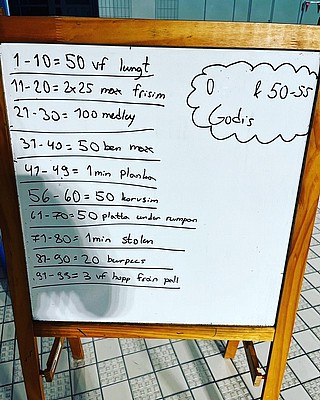 1-10 = 50 vf lungt
11-20 = 2x25 max frisim
21-30 = 100 medley
31-40 = 50 ben max
41-49 = 1 min Planka
56-60 = 50 korvsim
61-70 = 50 platta under rumpan
71-80 = 1 min stolen
81-90 = 20 burpees
91-99 = 3 vf hopp från pall
0 & 50-55
Godis